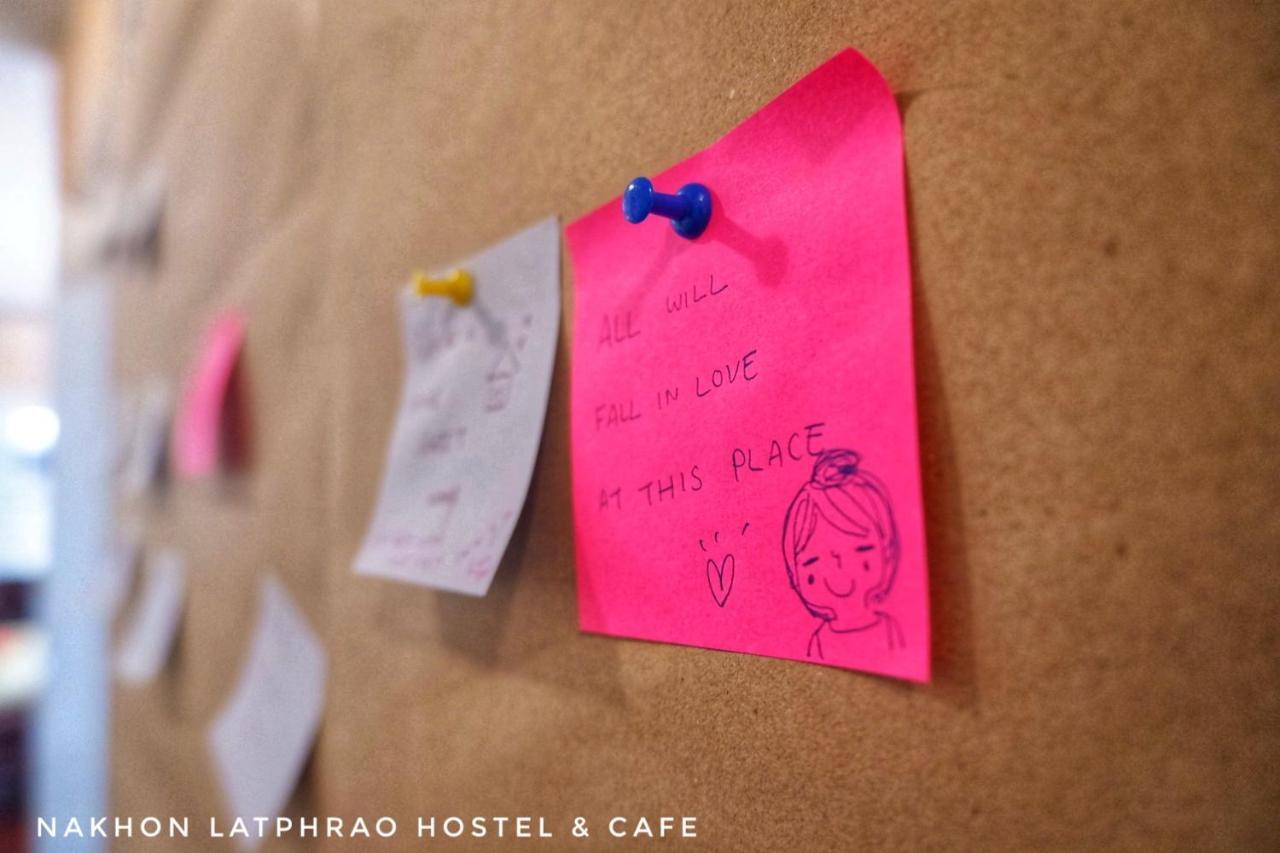 ALL WILL
FALL IN LOVE
AT THIS PLACE
NAKHON LATPHRAO HOSTEL & CAFE